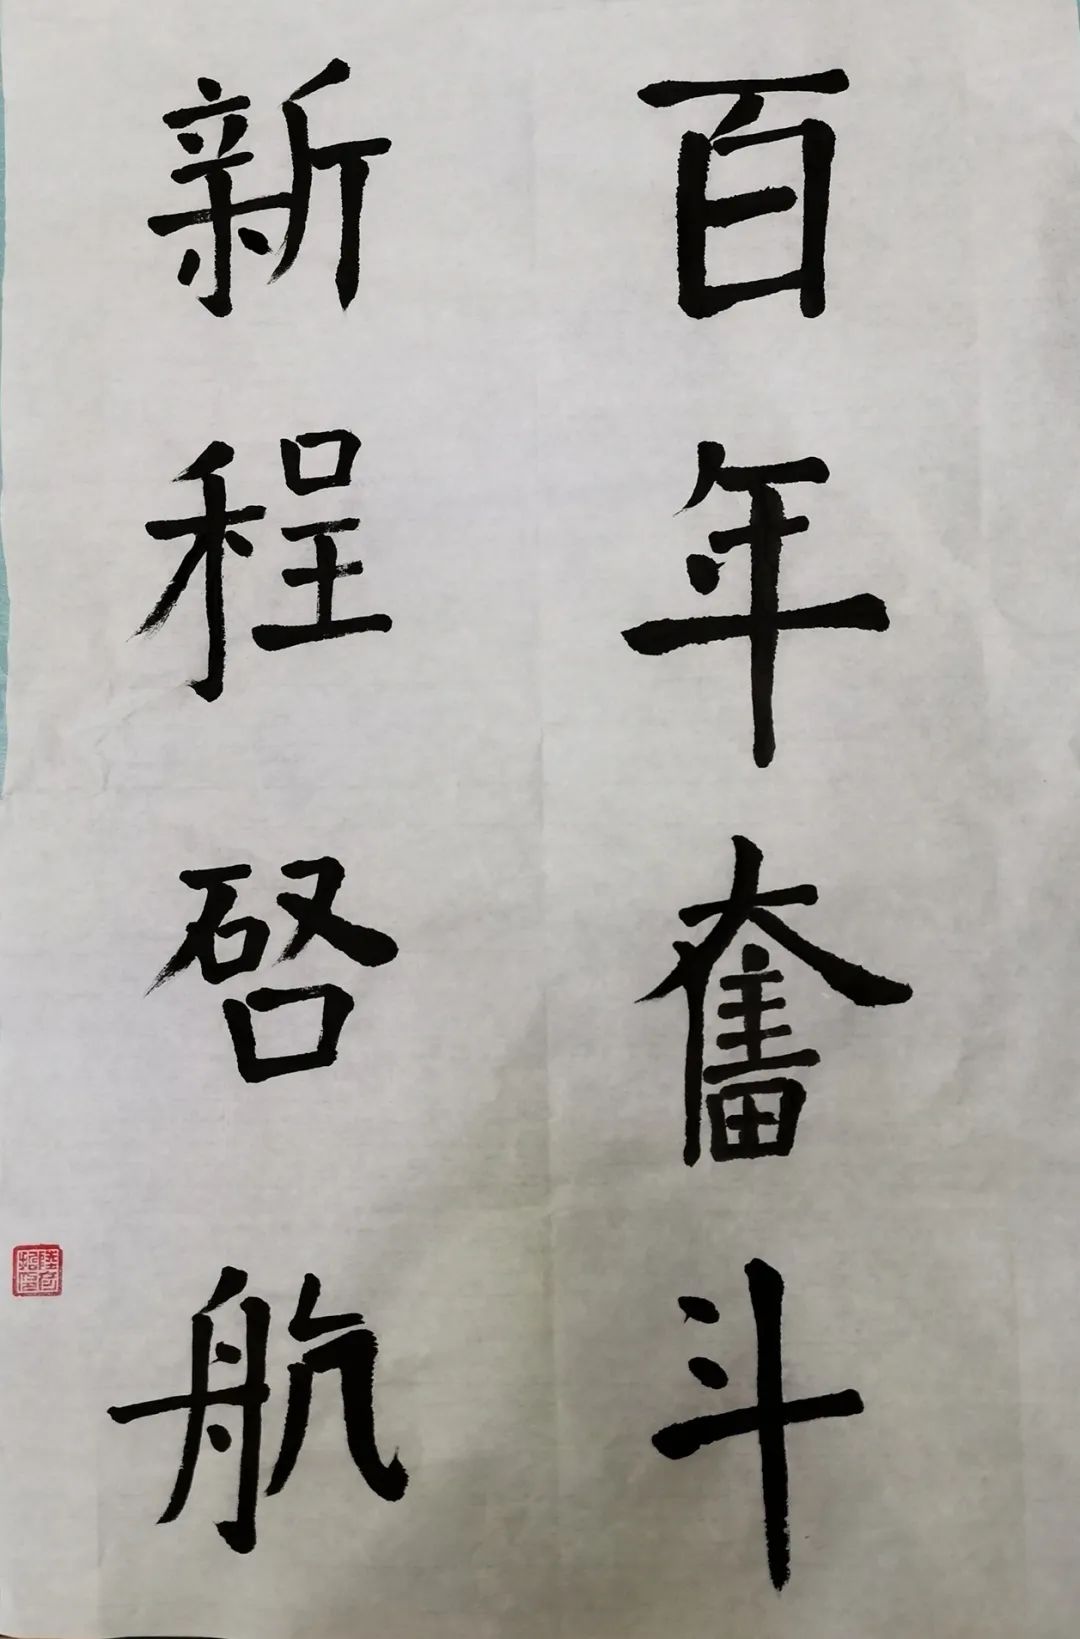 百年奮斗
新程啓航